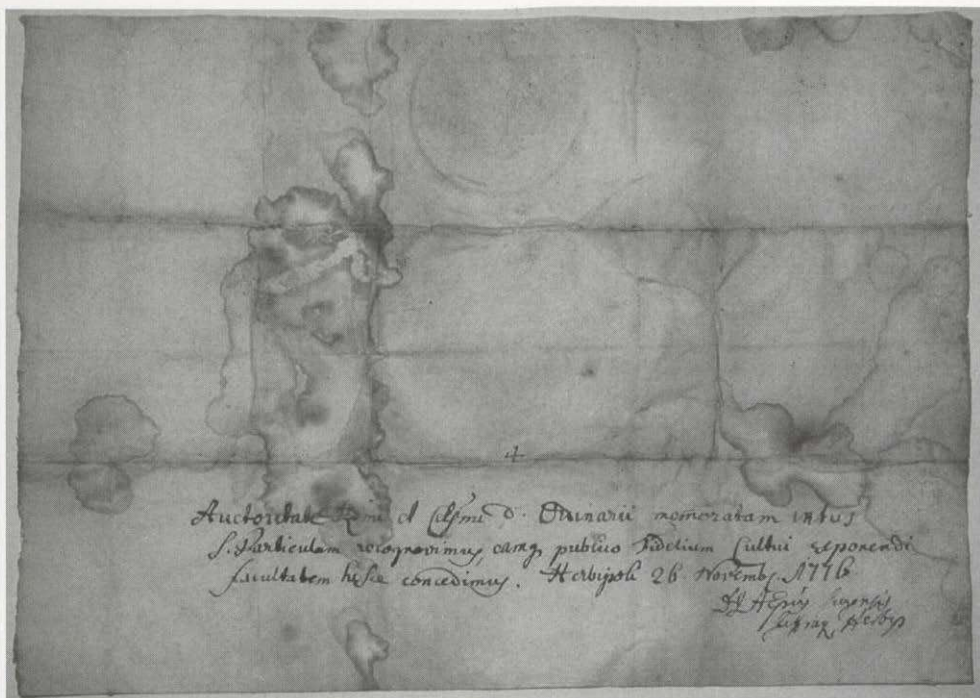 +
Auctoritate Rmi et Celsmi D. Ordinarii memoratam intus
S. Particulam recognovimus, eamq publico Fidelium Cultui exponendi
facultatem hisce concedimus. Herbipoli 26 Novembr. 1776
Suffrag Herbip